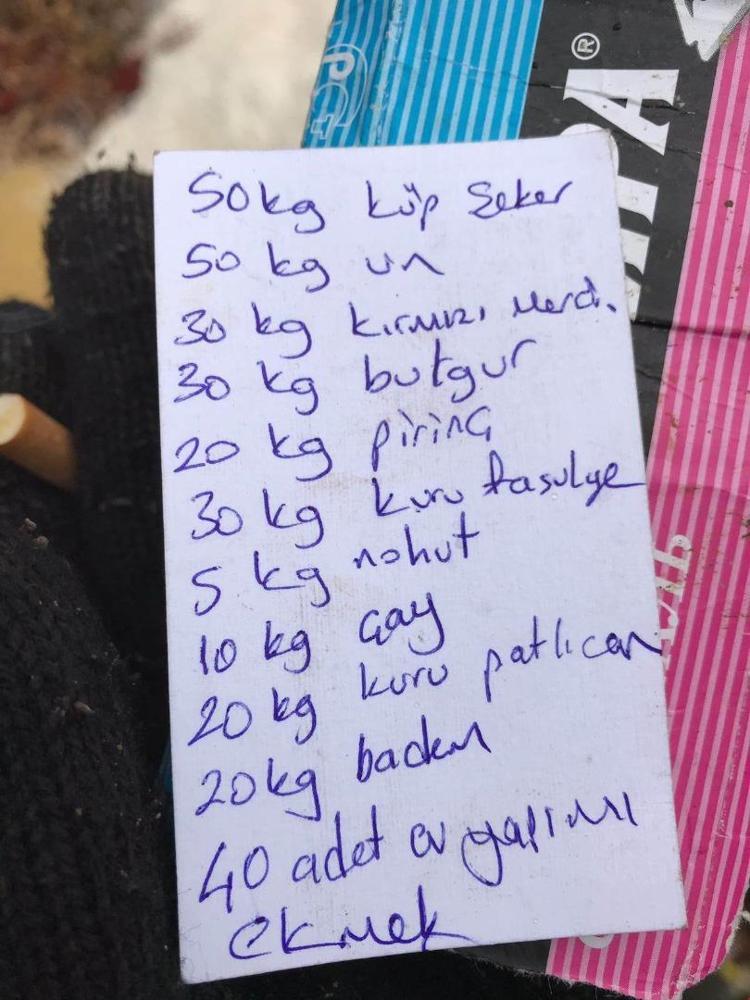 50 kg küp şeker
50 kg un
30 kg kırmızı merci.
30 kg bulgur
20 kg pirinç
30 kg kuru fasulye
5 kg nohut
10 kg çay
20 kg kuru patlıcan
20 kg badem
40 adet ev yapımı
ekmek